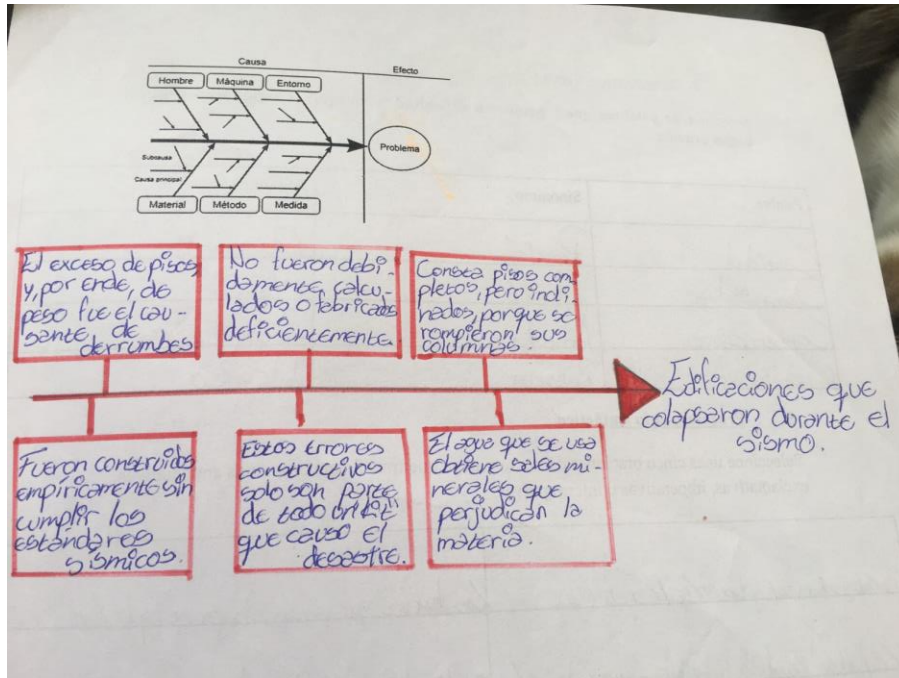 Causa
Efecto
Hombre
Máquina
Entorno
Problema
Subcausa
Causa principal
Material
Método
Medida
El exceso de pisos,
y, por ende, de
peso fue el cau-
sante, de
derrumbes
No fueron debi-
damente, calcu-
lados o fabricados
deficientemente.
Consta pisos com-
pletos, pero incli-
nados, porque se
rompieron sus
columnas.
Edificaciones que
colapsaron durante el
sismo.
Fueron construidos
empíricamente sin
cumplir los
estándares
sísmicos.
Estos Errores
constructivos
solo son parte
de todo
que causo el
desastre.
El agua que se usa
obtiene sales mi-
nerales que
perjudican la
materia.